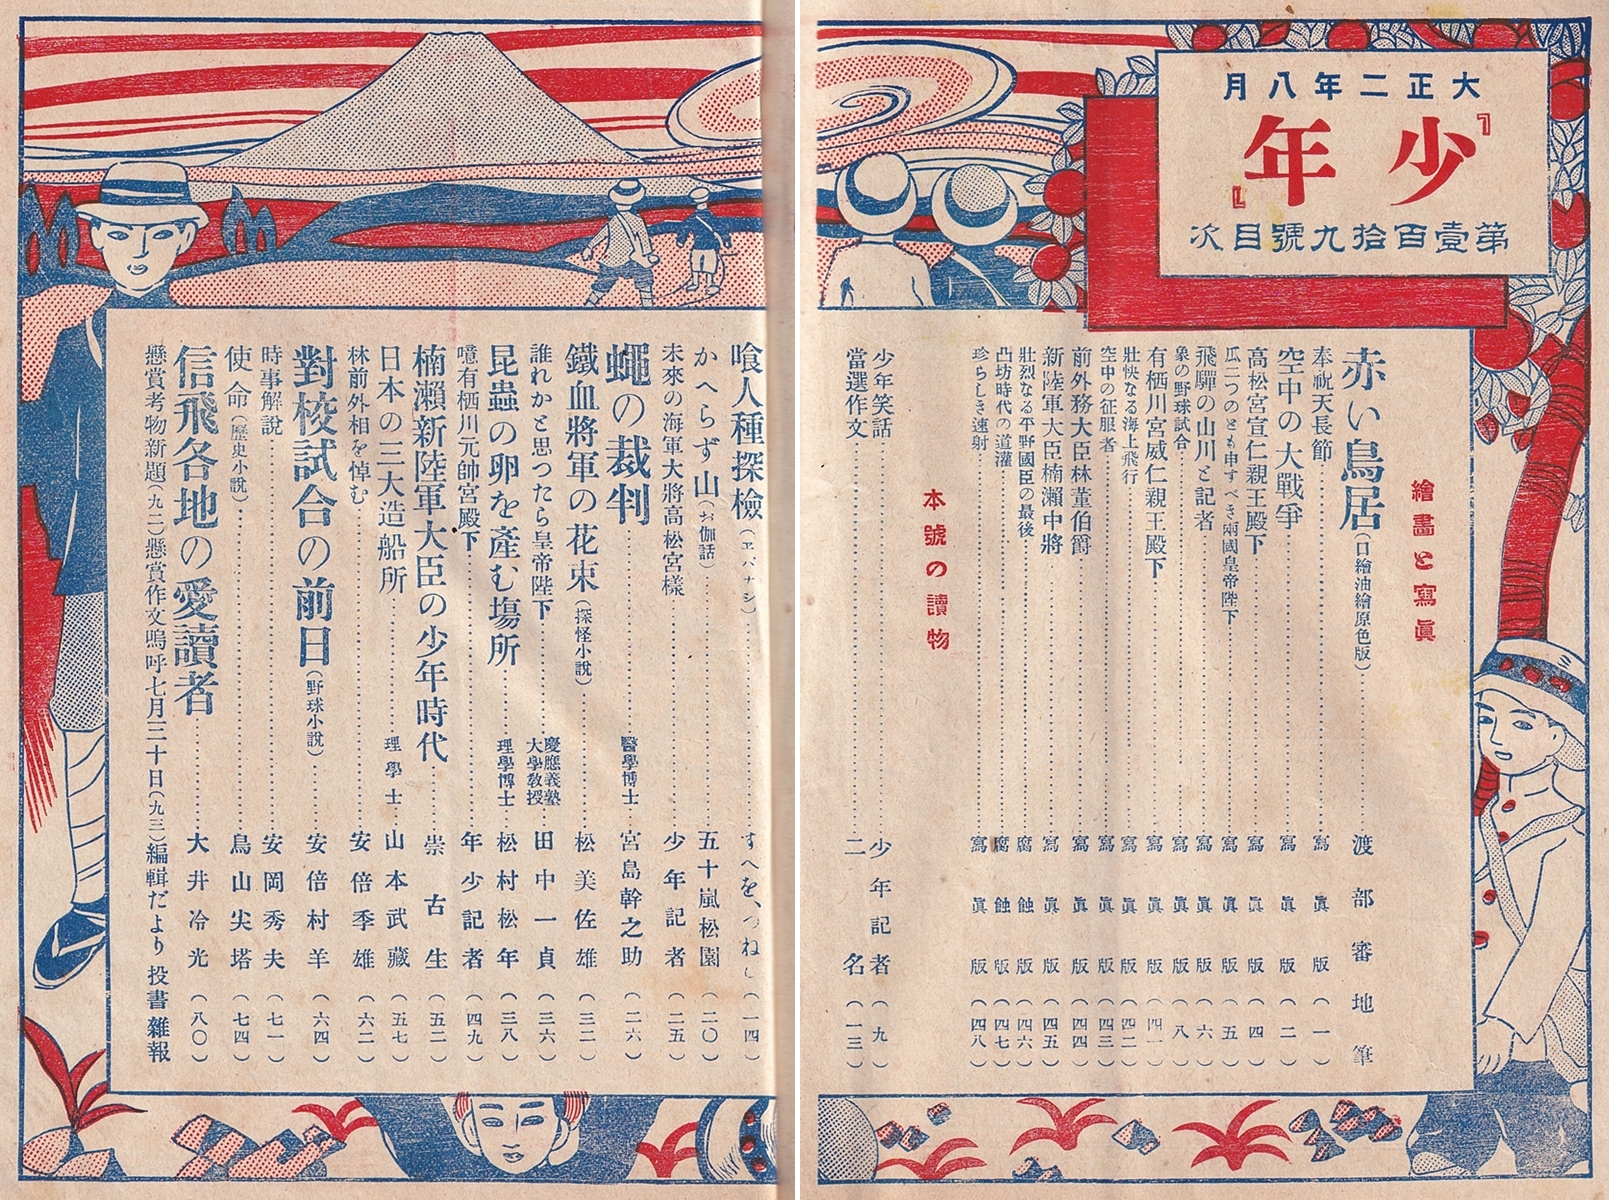 大正二年八月
『少年』
第壹百拾九號目次
繪畵と寫眞
赤い鳥居(口繪油繪原色版)……渡部審地筆
奉祝天長節……寫眞版(一)
空中の大戰爭……寫眞版(二)
高松宮宣仁親王殿下……寫眞版(四)
瓜二つのとも申すべき兩國皇帝陛下……寫眞版(五)
飛驒の山川と記者……寫眞版(六)
象の野球試合……寫眞版(八)
有栖川宮威仁親王殿下……寫眞版(四一)
壯快なる海上飛行……寫眞版(四二)
空中の征服者……寫眞版(四三)
前外務大臣林董伯爵……寫眞版(四四)
新陸軍大臣楠瀨中將……寫眞版(四五)
壯烈なる平野國臣の最後……腐蝕版(四六)
凸坊時代の道灌……腐蝕版(四七)
珍らしき速射……寫眞版(四八)
本號の讀物
少年笑話……少年記者(九)
當選作文……二名(一三)
喰人種探檢(ヱバナシ)……すへを、つねし(一四)
かへらず山(お伽話)……五十嵐松園(二〇)
未來の海軍大將高松宮樣……少年記者(二五)
蠅の裁判……醫學博士 宮島幹之助(二六)
鐵血將軍の花束(探怪小說)……松美佐雄(三二)
誰れかと思つたら皇帝陛下……慶應義塾大學敎授 田中一貞(三六)
昆蟲の卵を產む塲所……理學博士 松村松年(三八)
噫有栖川元帥宮殿下……年少記者(四九)
楠瀨新陸軍大臣の少年時代……崇古生(五二)
日本の三大造船所……理學士 山本武藏(五七)
林前外相を悼む……安倍季雄(六二)
對校試合の前日(野球小說)……安倍村羊(六四)
時事解說……安岡秀夫(七一)
使命(歷史小說)……鳥山尖塔(七四)
信飛各地の愛讀者……大井冷光(八〇)
懸賞考物新題(九二)懸賞作文嗚呼七月三十日(九三)編輯だより 投書 雜報